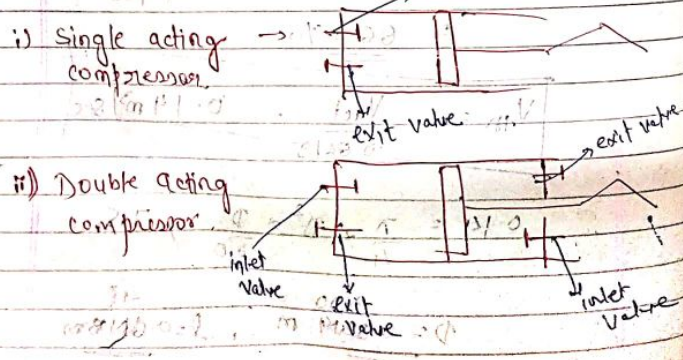 i) Single acting →
compressor.
exit valve
exit valve
ii) Double acting
compressor.
inlet
valve
exit
valve
inlet
valve